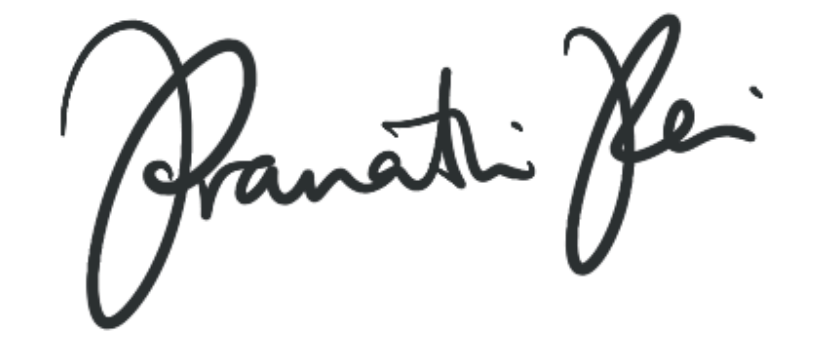 Pranathi Rei